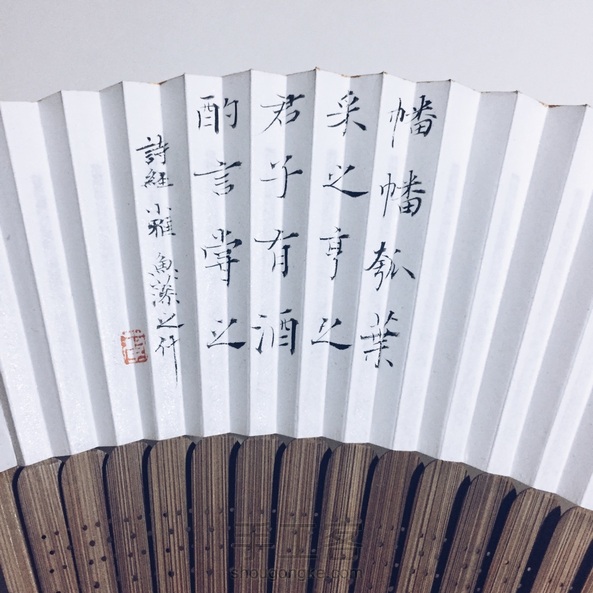 幡幡瓠葉
采之亨之
君子有酒
酌言嘗之
詩經 小雅 魚藻之什
手工客
shougongke.com